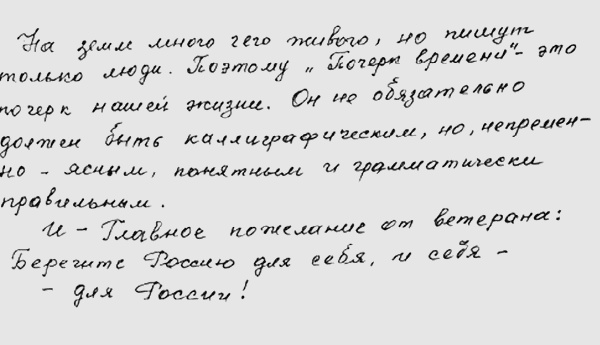 На земм много чего живого, но пишут
только люди. Поэтому „Почерк времени"- это
почерк нашей жизни. Он не обязательно
должен быть каллиграфическим, но, непремен-
но - ясным, понятным и грамматически
правильным.
И - Главное пожелание от ветерана:
Берегите Россию для себя, и себя -
- для России!